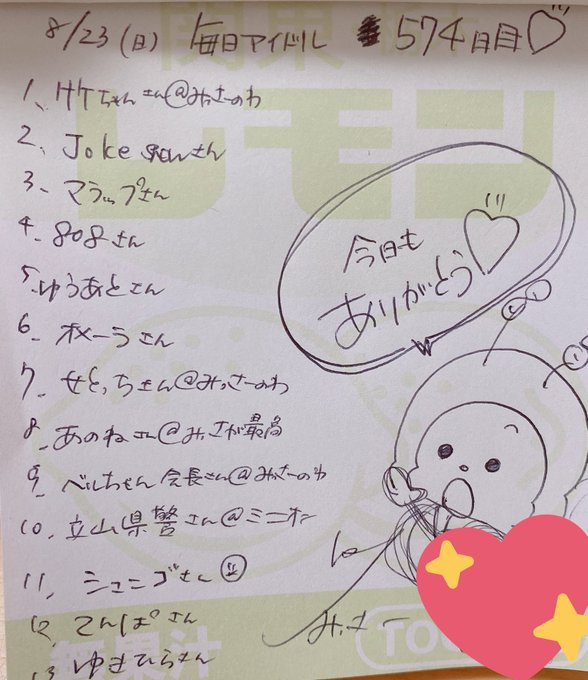 8/23(日) 毎日アイドル 574日目♡
1、サケちゃんさん@みっさーのわ
2、Joke grauさん
3、マラップさん
4、808さん
5、ゆうあとさん
6、オメーラさん
7、せとっちさん@みっさーのわ
8、あのねさん@みっさが最高
9、ベルちゃん会長さん@みっさーのわ
10、立山県警さん@ミニオン
11、シュニゴさん
12、てんぱさん
13 ゆきひらさん
今日も
ありがとう♡
みっさー
関東
レモン
無果汁